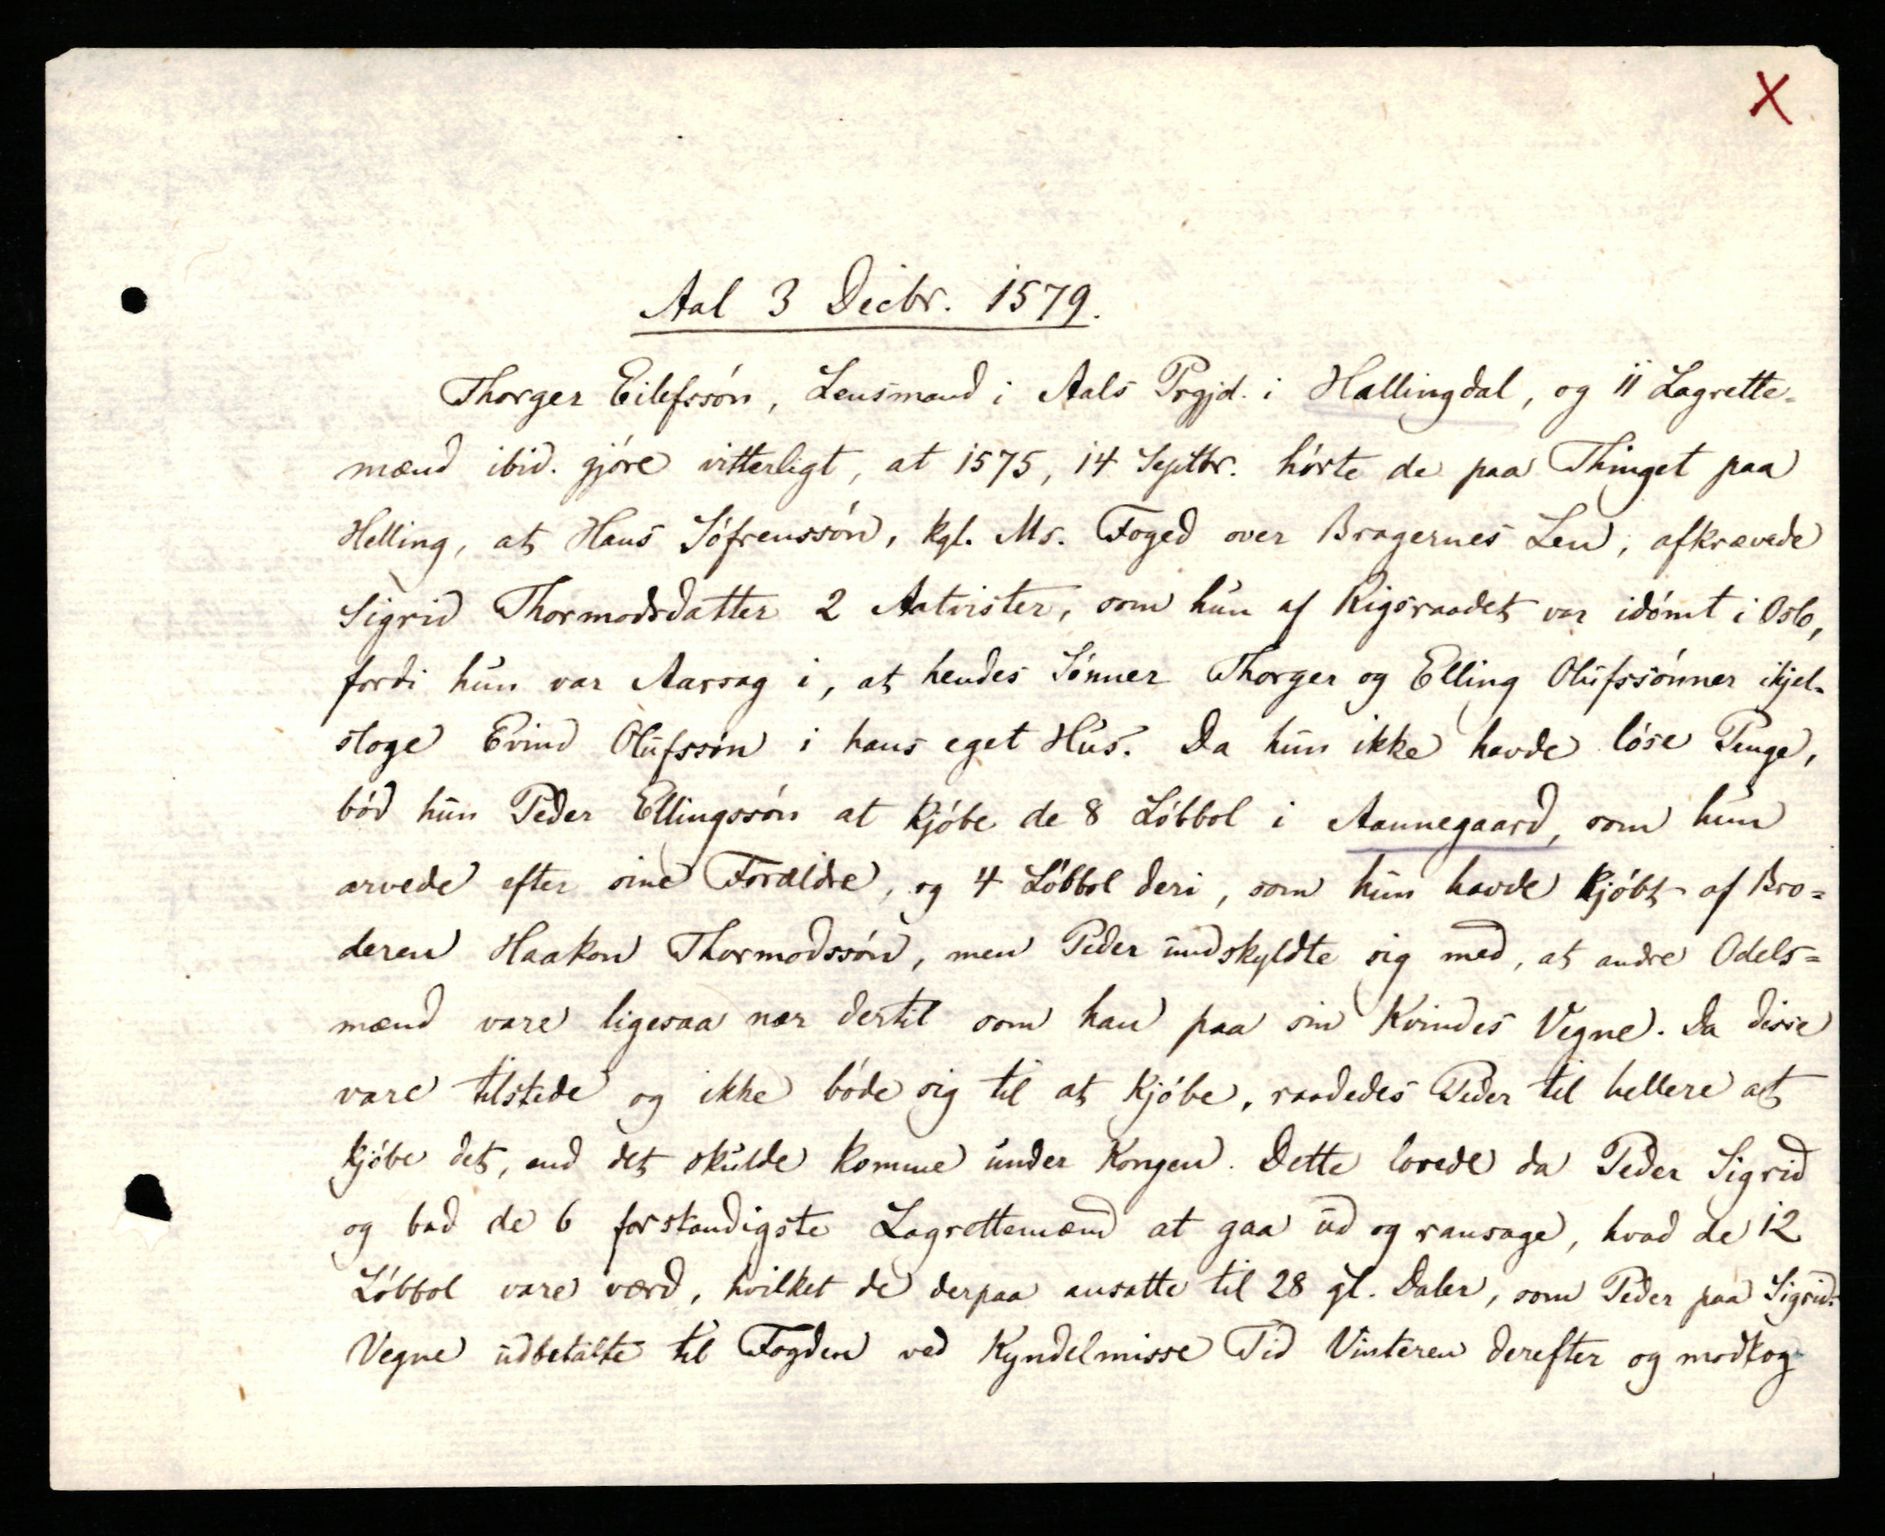 X
Aal 3 Decbr. 1579.
Thorger Eilefssón, Lensmand i Aals Prgjd. i Hallingdal, og 11 Lagrette-
mænd ibid. gjóre vitterligt, at 1575, 14 Septbr. hórte de paa Thinget paa
Helling, at Hans Sófrenssón, kgl. Ms. Foged over Bragernes Len, afkrævede
Sigrid Thormodsdatter 2 Aatvister, som hun af Rigsraadet var idómt i Oslo,
fordi hun var Aarsag i, at hendes Sónner Thorger og Elling Olufssónner ihjel-
sloge Evind Olufssón i hans eget Hus. Da hun ikke havde lóse Penge,
bód hun Peder Ellingssón at kjóbe de 8 Lóbbol i Aannegaard, som hun
arvede efter sine Forældre, og 4 Lóbbol deri, som hun havde kjóbt af Bro=
deren Haakon Thormodssón, men Peder undskyldte sig med, at andre Odels=
mænd vare ligesaa nær dertil som han paa sin Kvindes Vegne. Da disse
vare tilstede og ikke bóde sig til at kjóbe, raadedes Peder til hellere at
kjóbe det, end det skulde komme under Kongen. Dette lovede da Peder Sigrid
og bad de 6 forstandigste Lagrettemænd at gaa ud og ransage, hvad de 12
Lóbbol vare værd, hvilket de derpaa ansatte til 28 gl. Daler, som Peder paa Sigrids
Vegne udbetalte til Fogden ved Kyndelmisse Tid Vinteren derefter og modtog